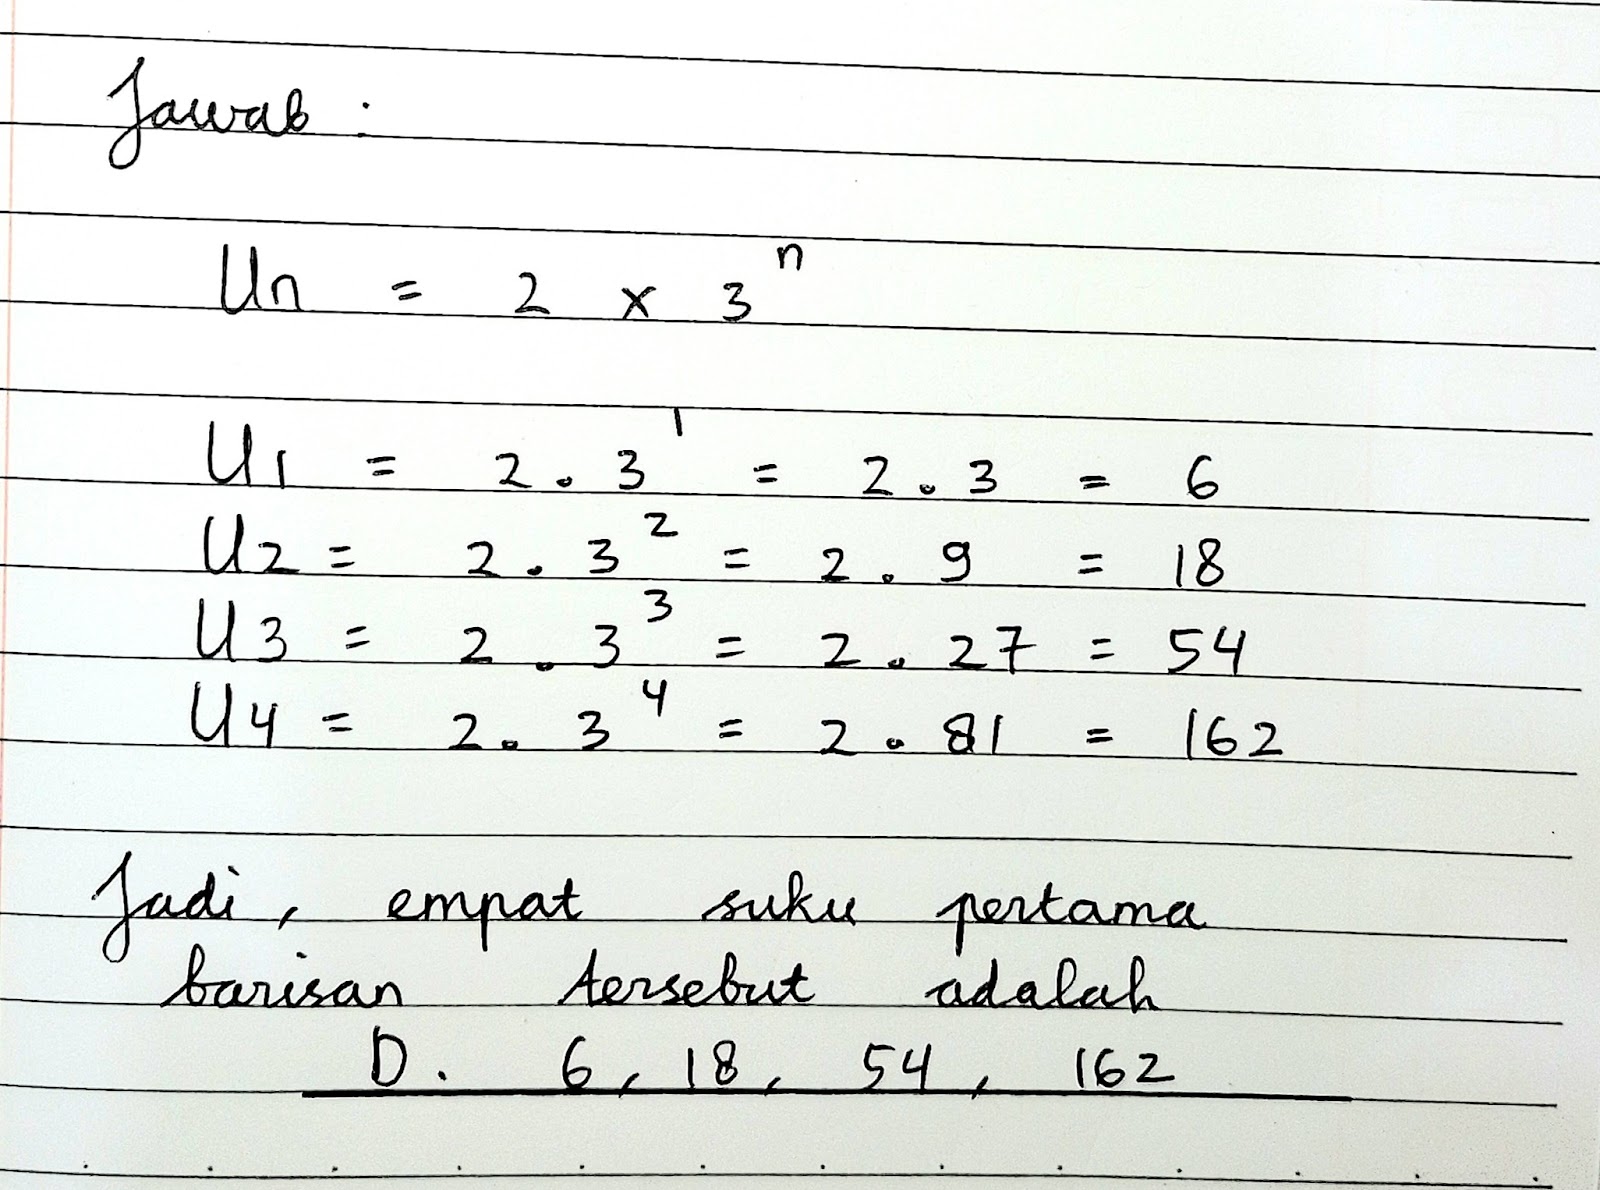 Jawab :
Un = 2 x 3ⁿ
U1 = 2 . 3¹ = 2 . 3 = 6
U2 = 2 . 3² = 2 . 9 = 18
U3 = 2 . 3³ = 2 . 27 = 54
U4 = 2 . 3⁴ = 2 . 81 = 162
Jadi, empat suku pertama
barisan tersebut adalah
D. 6, 18, 54, 162